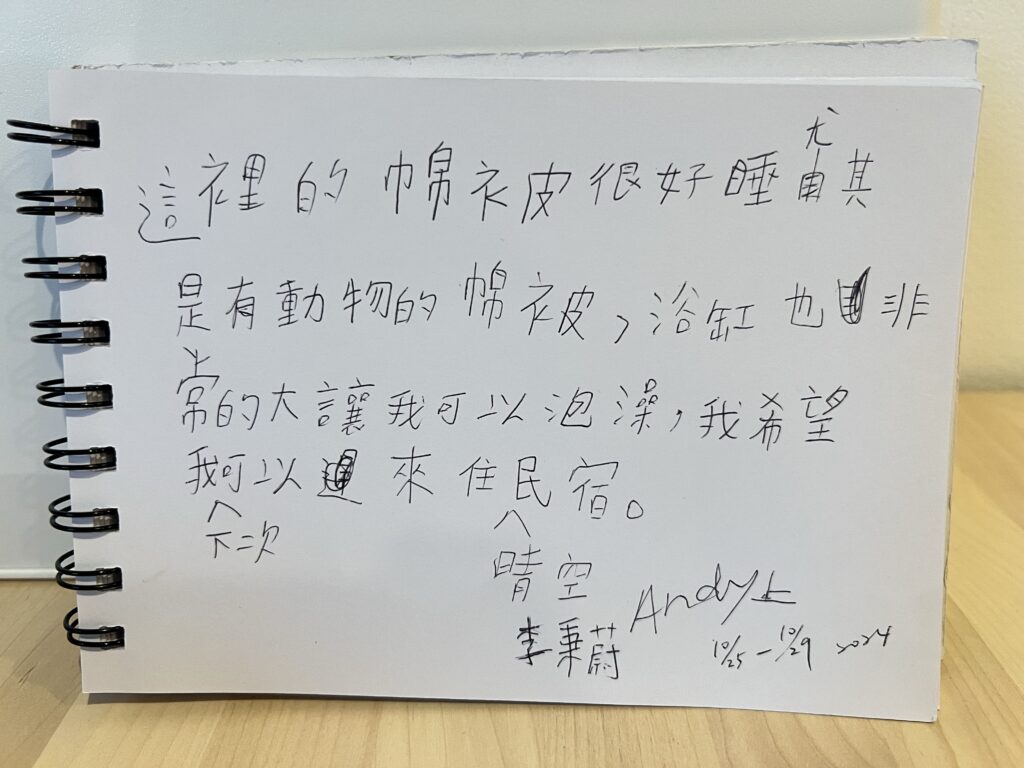 尤
這裡的棉衣皮很好睡其
是有動物的棉被,浴缸也非
常的大讓我可以泡澡,我希望
我可以來住民宿。
下二次
晴空
Andy上
李秉蔚
10/25-10/29 2024